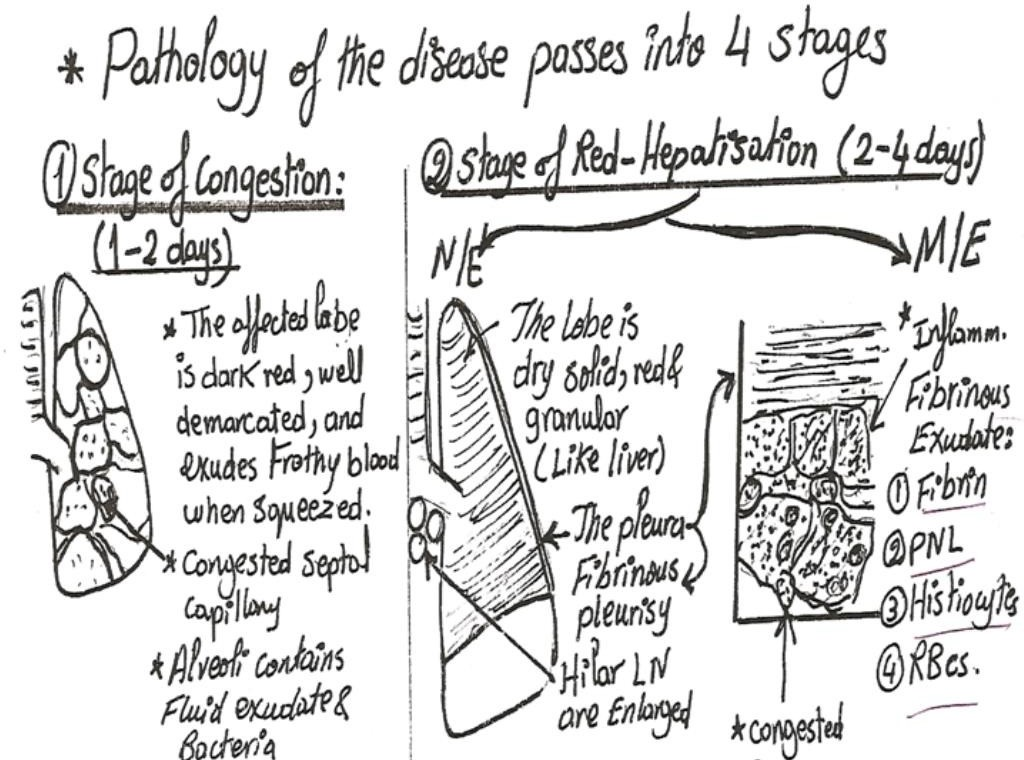 * Pathology of the disease passes into 4 stages
① Stage of Congestion:
(1-2 days)
* The affected lobe
is dark red, well
demarcated, and
exudes Frothy blood
when squeezed.
* Congested septal
capillary
* Alveoli contains
Fluid exudate &
Bacteria
② Stage of Red-Hepatisation (2-4 days)
N/E
The lobe is
dry solid, red &
granular
(Like liver)
The pleura
Fibrinous
pleurisy
Hilar LN
are Enlarged
M/E
* Inflamm.
Fibrinous
Exudate:
① Fibrin
② PNL
③ Histiocytes
④ RBcs.
* congested